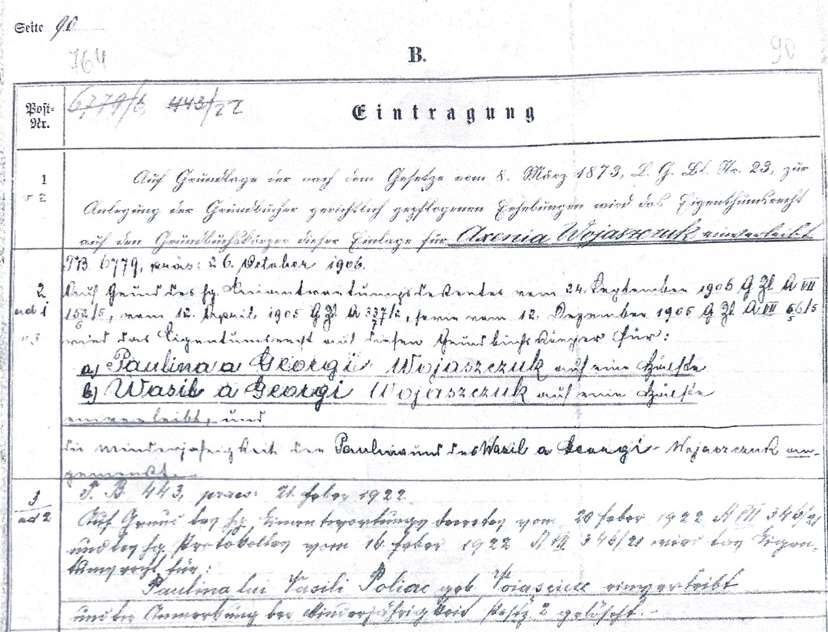 Seite 90
764 B. 90
Post-Nr.
6779/6 443/22
Eintragung
1
Auf Grundlage der nach dem Gesetze vom 8. März 1873, L. G. Bl. Nr. 23, zur
Anlegung der Grundbücher gerichtlich gepflogenen Erhebungen wird das Eigenthumsrecht
auf den Grundbuchskörper dieser Einlage für Axenia Wojaszczuk einverleibt
TB 6779, präs: 26. October 1906.
2
ad 1
Auf Grund des hg. Einantwortungsdekretes vom 24. September 1906 G Zl A VII
152/5, vom 12. April 1905 G Zl A 337/2, sowie vom 12. Dezember 1905 G Zl A VII 56/5
wird das Eigentumsrecht auf diesen Grundbuchskörper für:
a) Paulina a Georgi Wojaszczuk auf eine Hälfte
b) Wasil a Georgi Wojaszczuk auf eine Hälfte
einverleibt, und
die Minderjährigkeit der Paulina und des Wasil a Georgi Wojaszczuk an-
gemerkt.
3
ad 2
T. B 443, praes: 21 feber 1922
Auf Grund des hg. Einantwortungs decretes vom 20 feber 1922 A VII 346/21
und des hg. Protokolles vom 16 feber 1922 A VII 346/21 wird das Eigen-
tumsrecht für:
Paulina lui Vasili Poliac geb einverleibt
und die Anmerkung der Minderjährigkeit Postz. 2 gelöscht.